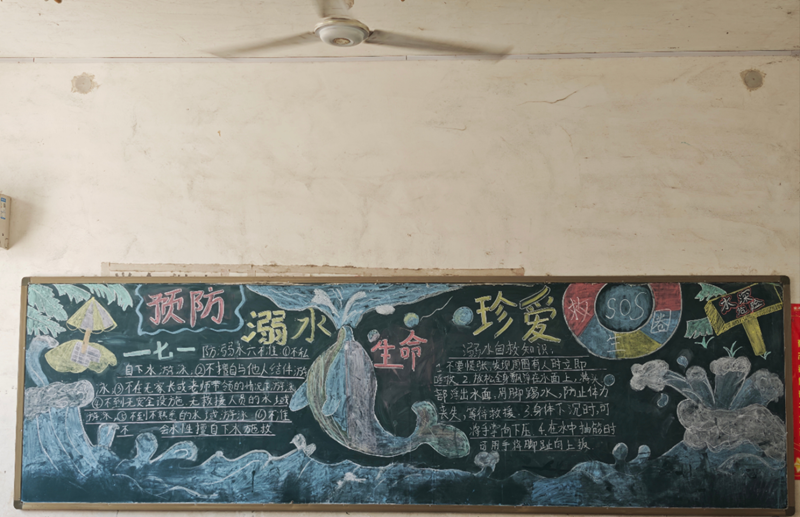 预防
溺水
生命
珍爱
救 SOS 圈
水深
危险
一七一 防溺水六不准 ①不私
自下水游泳 ②不擅自与他人结伴游
泳 ③不在无家长或老师带领的情况下游泳
④不到无安全设施、无救援人员的水域
游泳 ⑤不到不熟悉的水域游泳 ⑥不准
不 会水性擅自下水施救
溺水自救知识:
不要慌张,发现周围有人时立即
呼救 2.放松全身飘浮在水面上,将头
部浮出水面,用脚踢水,防止体力
丧失,等待救援 3.身体下沉时,可
将手掌向下压 4.在水中抽筋时
可用手将脚趾向上扳